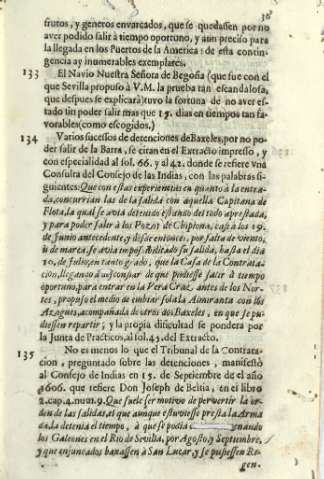 36
frutos, y generos envarcados, que se quedassen por no
aver podido salir à tiempo oportuno, y aun preciso para
la llegada en los Puertos de la America: de esta contin-
gencia ay inumerables exemplares.
133 El Navio Nuestra Señora de Begoña (que fue con el
que Sevilla propuso à V.M. la prueba tan escandalosa,
que despues se explicarà) tuvo la fortuna de no aver es-
tado sin poder salir mas que 15. dias en tiempos tan fa-
vorables (como escogidos.)
134 Varios sucessos de detenciones de Baxeles, por no po-
der salir de la Barra, se citan en el Extracto impresso, y
con especialidad al fol. 66. y al 42. donde se refiere vna
Consulta del Consejo de las Indias, con las palabras si-
guientes: Que con estas experiencias en quanto à la entra-
da, concurrian las de la salida con aquella Capitana de
Flota, la qual se avia detenido estando del todo aprestada,
y para poder salir à los Pozos de Chipiona, casi à los 19.
de Junio antecedente, y desde entonces, por falta de viento,
ù de marea, se avia impossibilitado su salida, hasta el dia
10. de Julio, en tanto grado, que la Casa de la Contrata-
cion, llegando à desconfiar de que pudiesse salir à tiempo
oportuno, para entrar en la Vera Cruz antes de los Nor-
tes, propuso el medio de embiar sola la Almiranta con los
Azogues, acompañada de otros dos Baxeles, en que se pu-
diessen repartir; y la propia dificultad se pondera por
la Junta de Practicos, al fol. 45. del Extracto.
135 No es menos lo que el Tribunal de la Contrata-
cion, preguntado sobre las detenciones, manifestò
al Consejo de Indias en 15. de Septiembre de el año
1606. que refiere Don Joseph de Beitia, en el libro
2. cap. 4. num. 9. Que suele ser motivo de pervertir la or-
den de las salidas, el que aunque estuviesse presta la Arma-
da, la detenia el tiempo, à que se podia nando
los Galeones en el Rio de Sevilla, por Agosto, y Septiembre,
y que enjuncados baxassen à San Lucar, y se pusiessen Re-
gen.